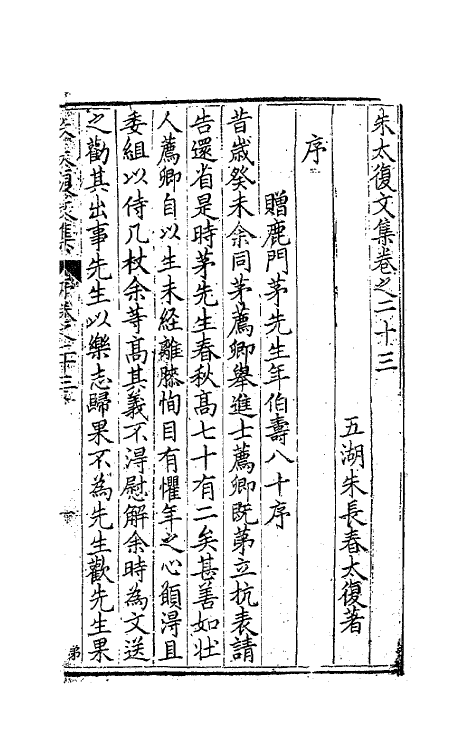 朱太復文集卷之二十三
五湖朱長春太復著
序
贈鹿門茅先生年伯壽八十序
昔歲癸未余同茅薦卿舉進士薦卿既第立抗表請
告還省是時茅先生春秋高七十有二矣甚善如壯
人薦卿自以生未經離膝恂目有懼年之心願得且
委組以侍几杖余等高其義不得慰解余時為文送
之勸其出事先生以樂志歸果不為先生歡先生果
朱太復文集
卷之二十三
第